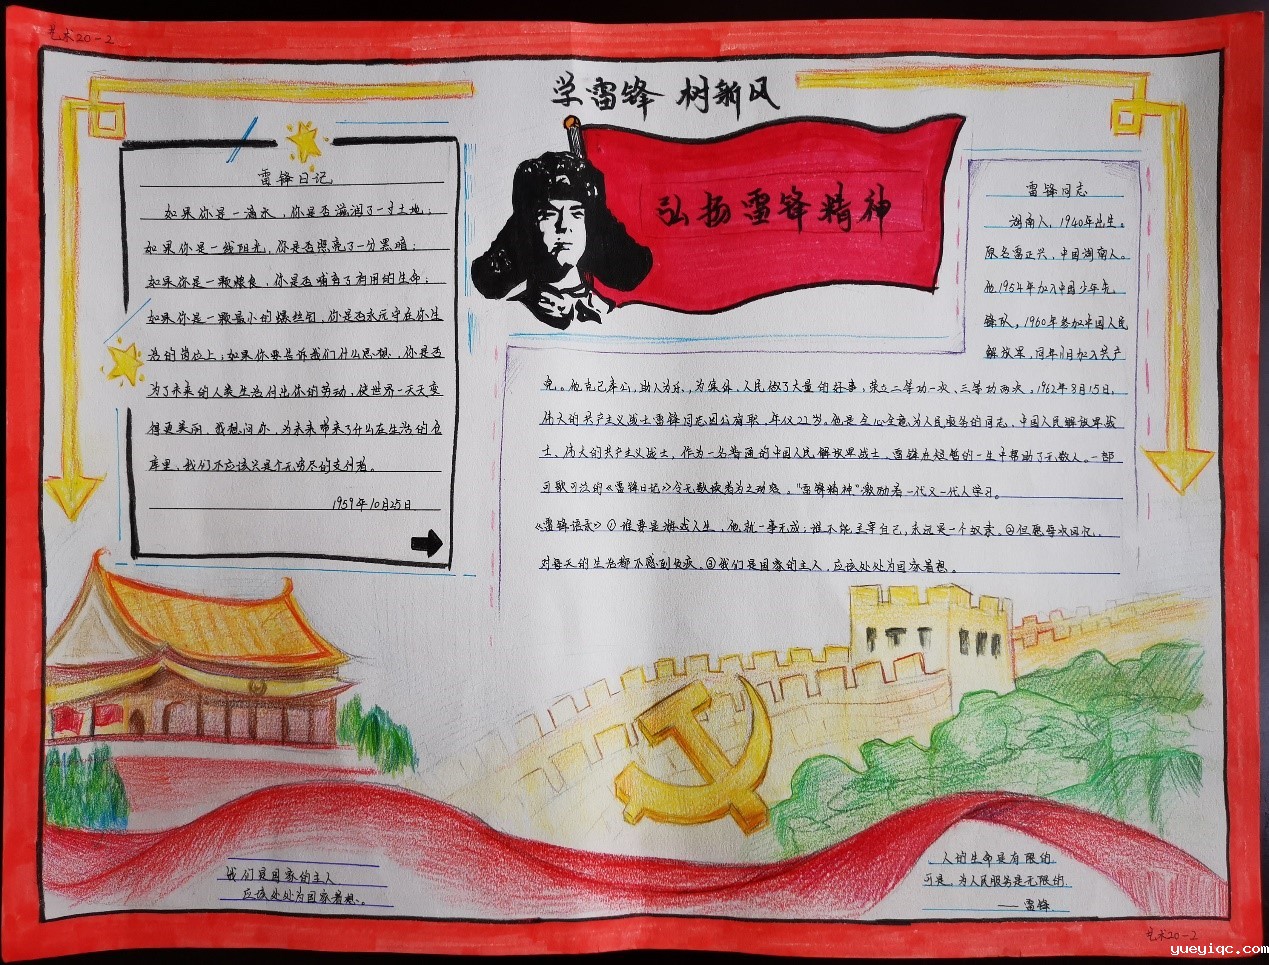 艺术20-2
学雷锋 树新风
弘扬雷锋精神
雷锋日记
如果你是一滴水，你是否滋润了一寸土地；
如果你是一线阳光，你是否照亮了一分黑暗；
如果你是一颗粮食，你是否哺育了有用的生命；
如果你是一颗最小的螺丝钉，你是否永远守在你生
活的岗位上；如果你要告诉我们什么思想，你是否
为了未来的人类生活付出你的劳动，使世界一天天变
得更美丽，我想问你，为未来带来了什么在生活的仓
库里，我们不应该只是个无穷尽的支付者。
1959年10月25日
雷锋同志
湖南人，1940年出生。
原名雷正兴，中国湖南人。
他1954年加入中国少年先
锋队，1960年参加中国人民
解放军，同年11月加入共产
党。他克己奉公，助人为乐，为集体、人民做了大量的好事，荣立二等功一次、三等功两次。1962年8月15日，
伟大的共产主义战士雷锋同志因公殉职，年仅22岁。他是全心全意为人民服务的同志，中国人民解放军战
士、伟大的共产主义战士，作为一名普通的中国人民解放军战士，雷锋在短暂的一生中帮助了无数人。一部
可歌可泣的《雷锋日记》令无数读者为之动容。“雷锋精神”激励着一代又一代人学习。
《雷锋语录》①谁要是游戏人生，他就一事无成；谁不能主宰自己，永远是一个奴隶。②但愿每次回忆，
对每天的生活都不感到负疚。③我们是国家的主人，应该处处为国家着想。
我们是国家的主人
应该处处为国家着想。
人的生命是有限的
可是，为人民服务是无限的。
——雷锋
艺术20-2
yueyiqc.com